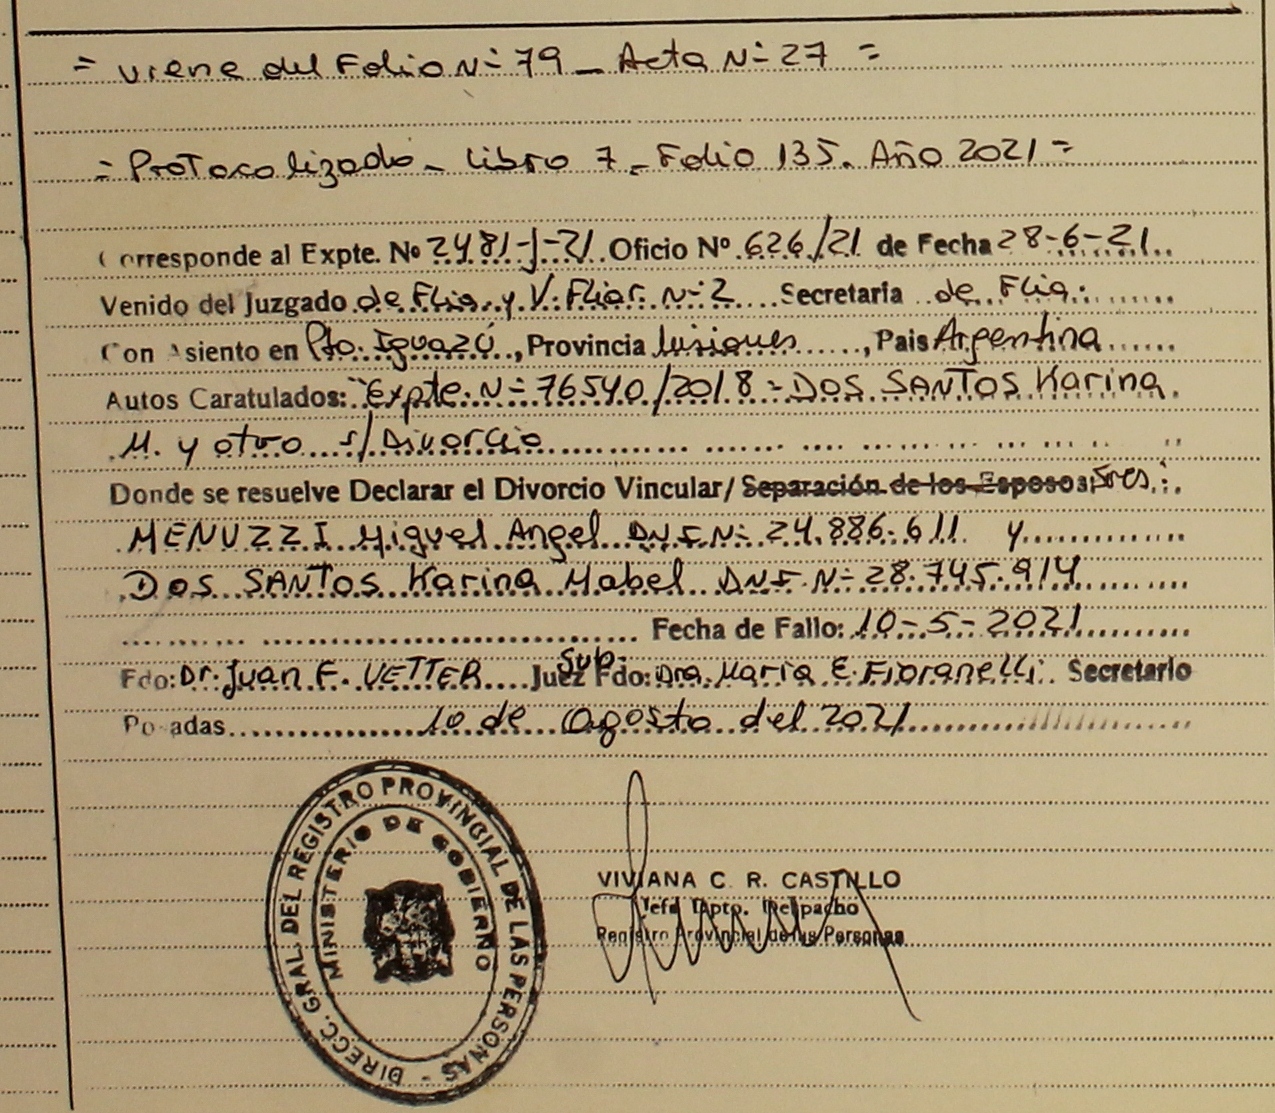 = viene del Folio N- 79 _ Acta N- 27 =
= Protocolizado _ Libro 7 _ Folio 135. Año 2021 =
Corresponde al Expte. Nº 2481-J-21. Oficio Nº 626/21 de Fecha 28-6-21..
Venido del Juzgado de Flia. y V. Fliar. N- 2 .... Secretaria de Flia.
Con Asiento en Pto. Iguazú.., Provincia Misiones ......, Pais Argentina ......
Autos Caratulados: "Expte. N- 76540/2018 - DOS SANTOS Karina
M. y otro s/ Divorcio
Donde se resuelve Declarar el Divorcio Vincular/ Separación de los Esposos: Sres.:
MENUZZI Miguel Angel D.N.I. N- 24.886.611 y
DOS SANTOS Karina Mabel D.N.I. N- 28.745.914
Fecha de Fallo: 10-5-2021
Fdo: Dr. Juan F. VETTER .... Juez Sub. Fdo: Dra. Maria E. Fioranelli. Secretario
Posadas 10 de Agosto del 2021
DIRECC. GRAL. DEL REGISTRO PROVINCIAL DE LAS PERSONAS -
MINISTERIO DE GOBIERNO
VIVIANA C. R. CASTILLO
Jefa Dpto. Despacho
Registro Provincial de las Personas